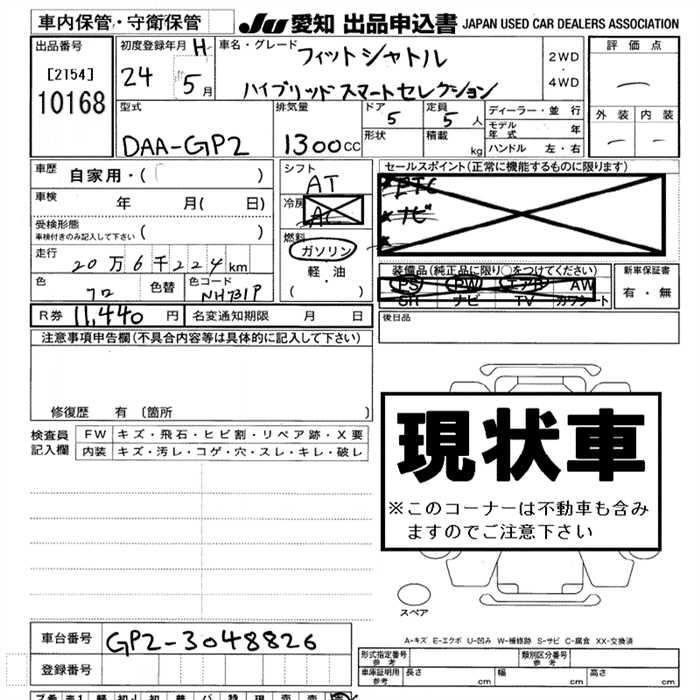 車内保管・守衛保管
JU 愛知 出品申込書 JAPAN USED CAR DEALERS ASSOCIATION
出品番号
[2154]
10168
初度登録年月 H
24 5月
車名・グレード
フィットシャトル
ハイブリッド スマートセレクション
2WD
・
4WD
評価点
—
外装 内装
— —
型式
DAA-GP2
排気量
1300cc
ドア 5
形状
定員 5人
積載 kg
ディーラー・並行
モデル年式 年
ハンドル 左・右
車歴 自家用・( )
車検 年 月( 日)
受検形態
車検付きのみ記入して下さい ( )
走行 20万6千224km
色 クロ 色替 色コード NH731P
シフト
AT
冷房
AC
燃料
ガソリン
軽・油
・
( )
セールスポイント(正常に機能するものに限ります)
装備品(純正品に限り○をつけてください)
PS PW エアB AW
SR ナビ TV カワシート
新車保証書
有・無
R券 11,440 円 名変通知期限 月 日
後日品
注意事項申告欄(不具合内容等は具体的に記入して下さい)
修復歴 有〔箇所 〕
検査員
記入欄
FW キズ・飛石・ヒビ割・リペア跡・X要
内装 キズ・汚レ・コゲ・穴・スレ・キレ・破レ
現状車
※このコーナーは不動車も含み
ますのでご注意下さい
スペア
A-キズ E-エクボ U-凹み W-補修跡 S-サビ C-腐食 XX-交換済
車台番号 GP2-3048826
登録番号
形式指定番号 参考
類別区分番号 参考
車庫証明用 参考 長さ cm 幅 cm 高さ cm